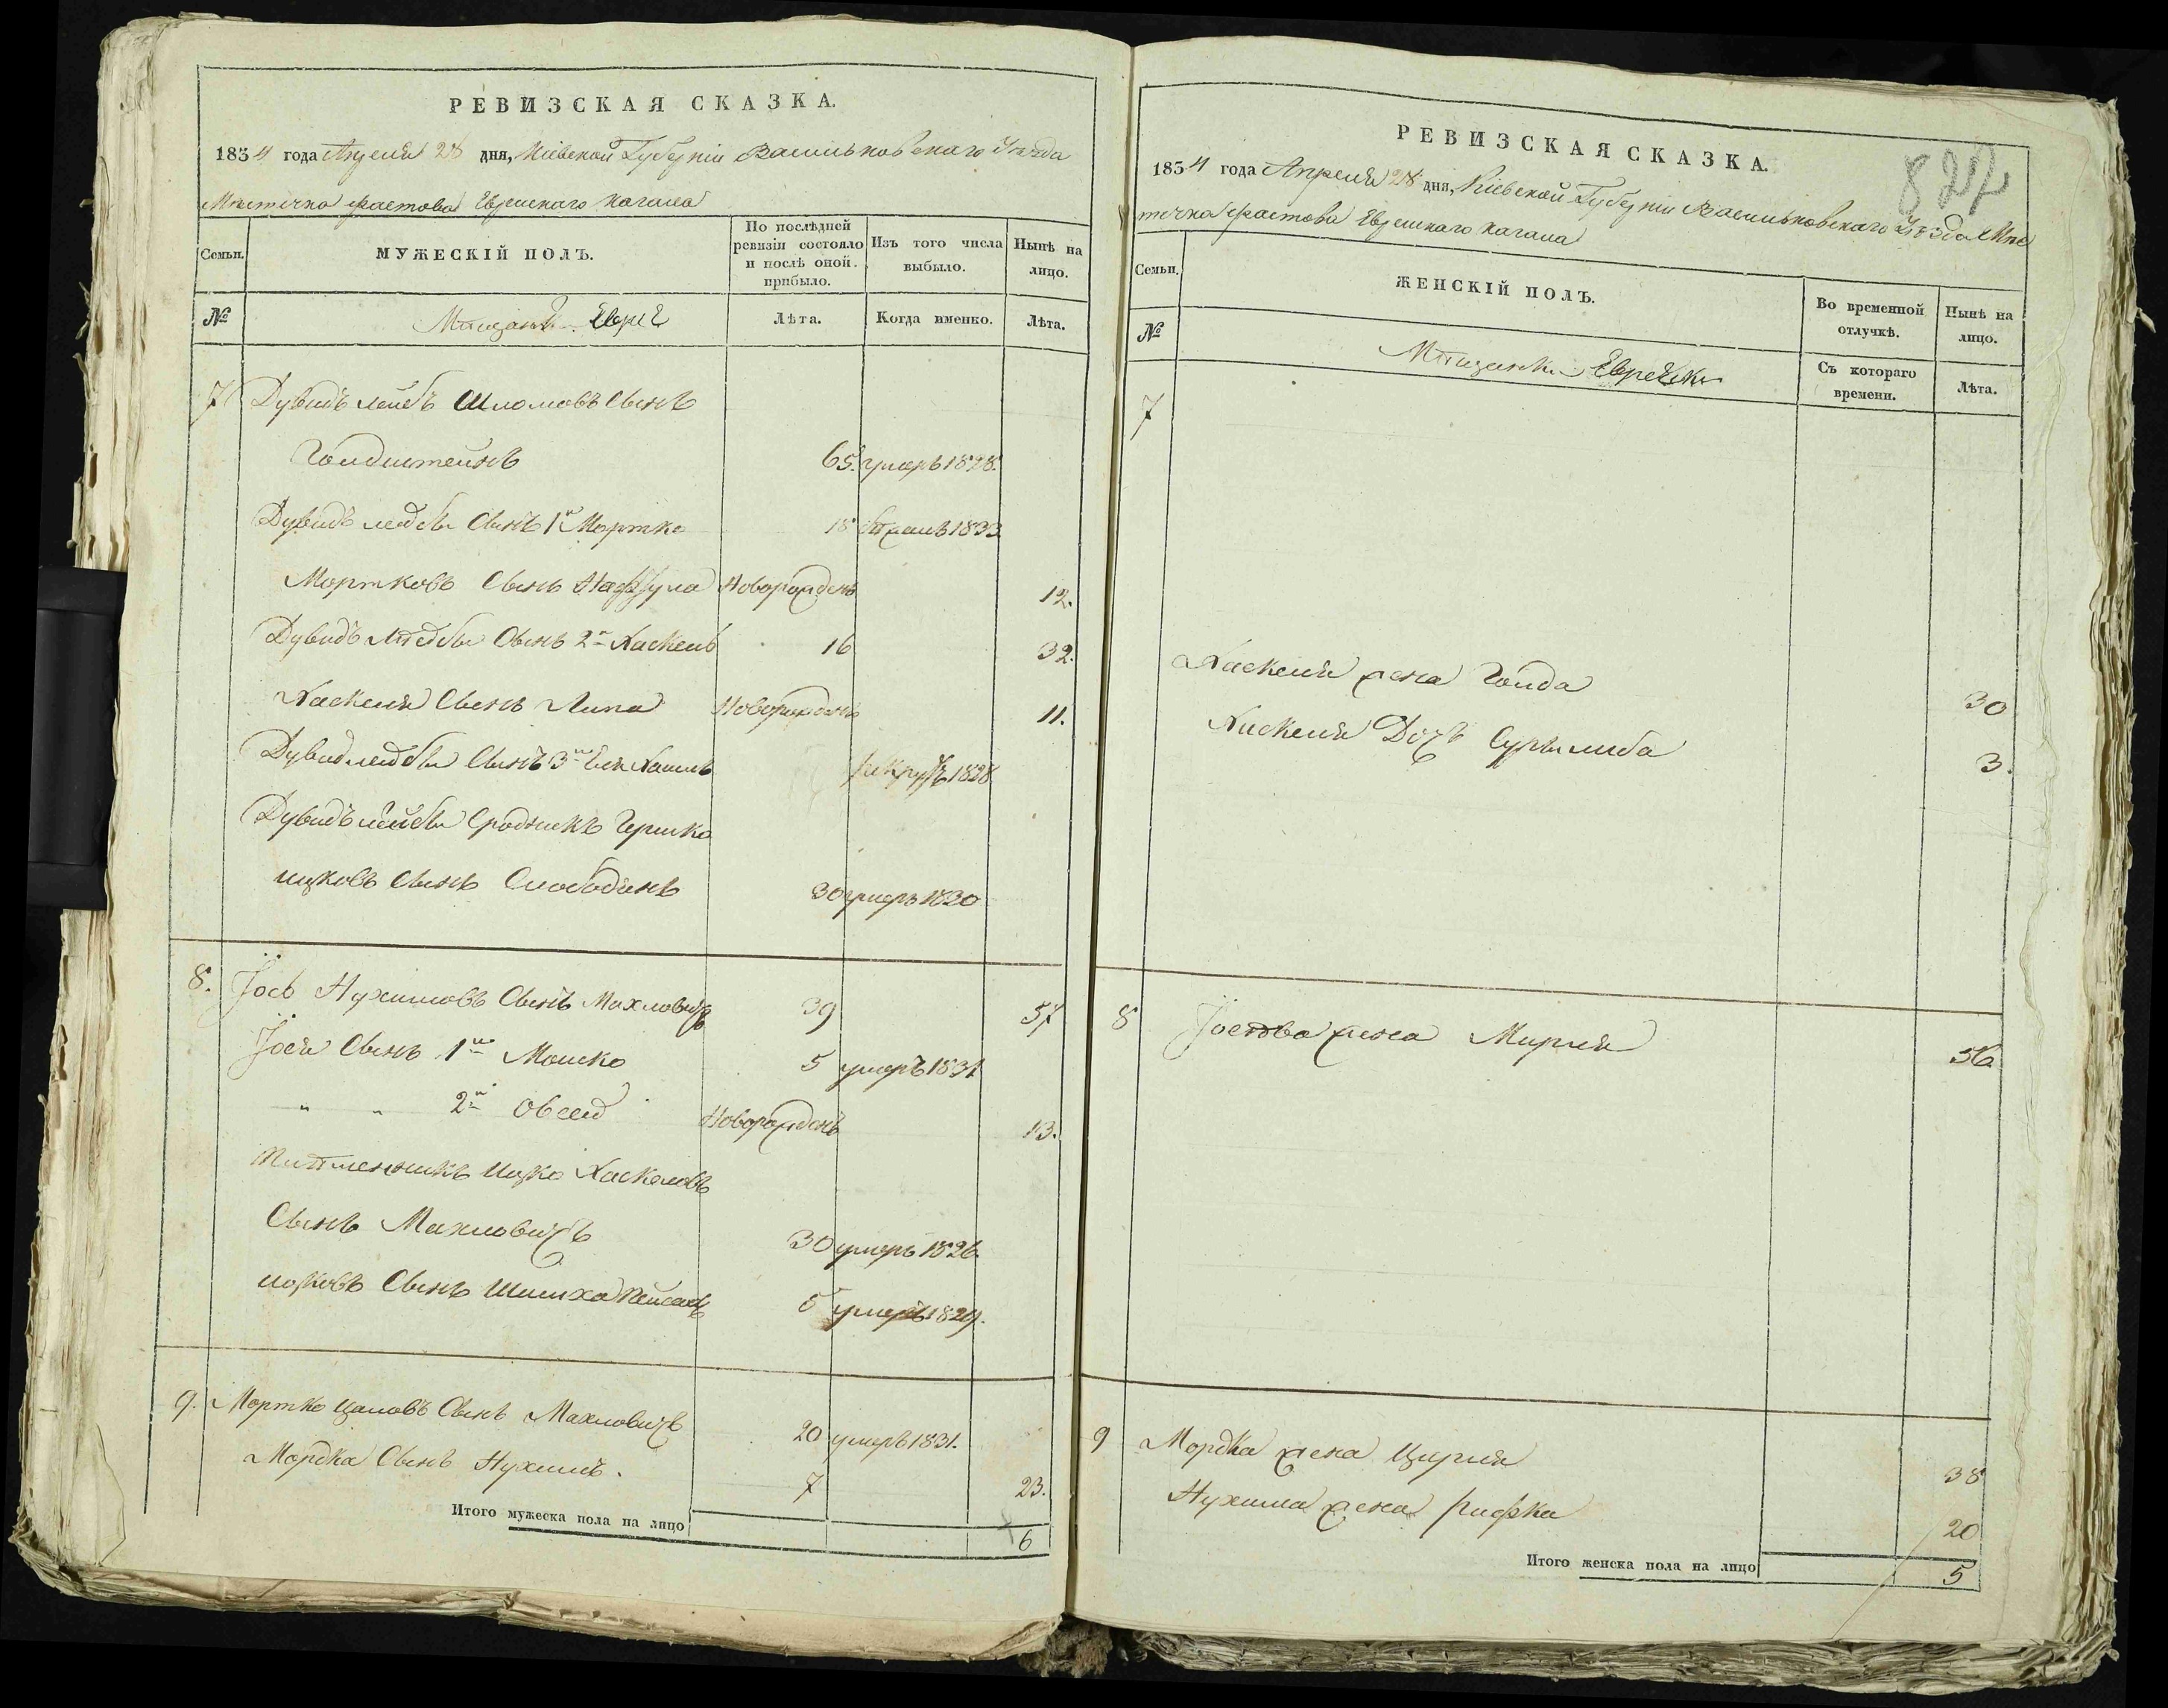 РЕВИЗСКАЯ СКАЗКА.
1834 года Апреля 28 дня, Кіевской Губерніи Васильковскаго Уѣзда
Мѣстечка Фастова Еврейскаго Кагала
Семьи.
МУЖЕСКІЙ ПОЛЪ.
По послѣдней ревизіи состояло и послѣ оной прибыло.
Изъ того числа выбыло.
Нынѣ на лицо.
№
Мѣщанѣ Евреѣ
Лѣта.
Когда именно.
Лѣта.
7 Дувидъ Лейбъ Шломовъ Сынъ
Голдштейнъ 65. умеръ 1828.
Дувидъ Лейбы Сынъ 1й Мортко 18 1833
Мортковъ Сынъ Новорожденъ 12.
Дувидъ Лейбы Сынъ 2й Хаскель 16 32.
Хаскеля Сынъ Липа Новорожденъ 11.
Дувидъ Лейбы Сынъ 3й рекрутъ 1828
Дувидъ Лейбы Сродникъ Гершко
Ицковъ Сынъ Слободянъ 30 умеръ 1830
8. Іось Нухимовъ Сынъ Махловичъ 39 57
Іося Сынъ 1й Мошко 5 умеръ 1831
" " 2й Овсей Новорожденъ 13.
Племенникъ Ицко Хаскелевъ
Сынъ Махловичъ 30 умеръ 1826.
Ицковъ Сынъ 5 умеръ 1829.
9. Мортко Сынъ Махловичъ 20 умеръ 1831.
Мордка Сынъ Нухимъ. 7 23.
Итого мужеска пола на лицо 6
РЕВИЗСКАЯ СКАЗКА.
827
1834 года Апреля 28 дня, Кіевской Губерніи Васильковскаго Уѣзда Мѣс
течка Фастова Еврейскаго Кагала
Семьи.
ЖЕНСКІЙ ПОЛЪ.
Во временной отлучкѣ.
Нынѣ на лицо.
№
Мѣщанки Еврейки
Съ котораго времени.
Лѣта.
7
Хаскеля жена Голда 30
Хаскеля Дочь 3.
8 жена Мирля 56
9 Мордка жена Цирля 38
Нухима жена Рифка 20
Итого женска пола на лицо 5